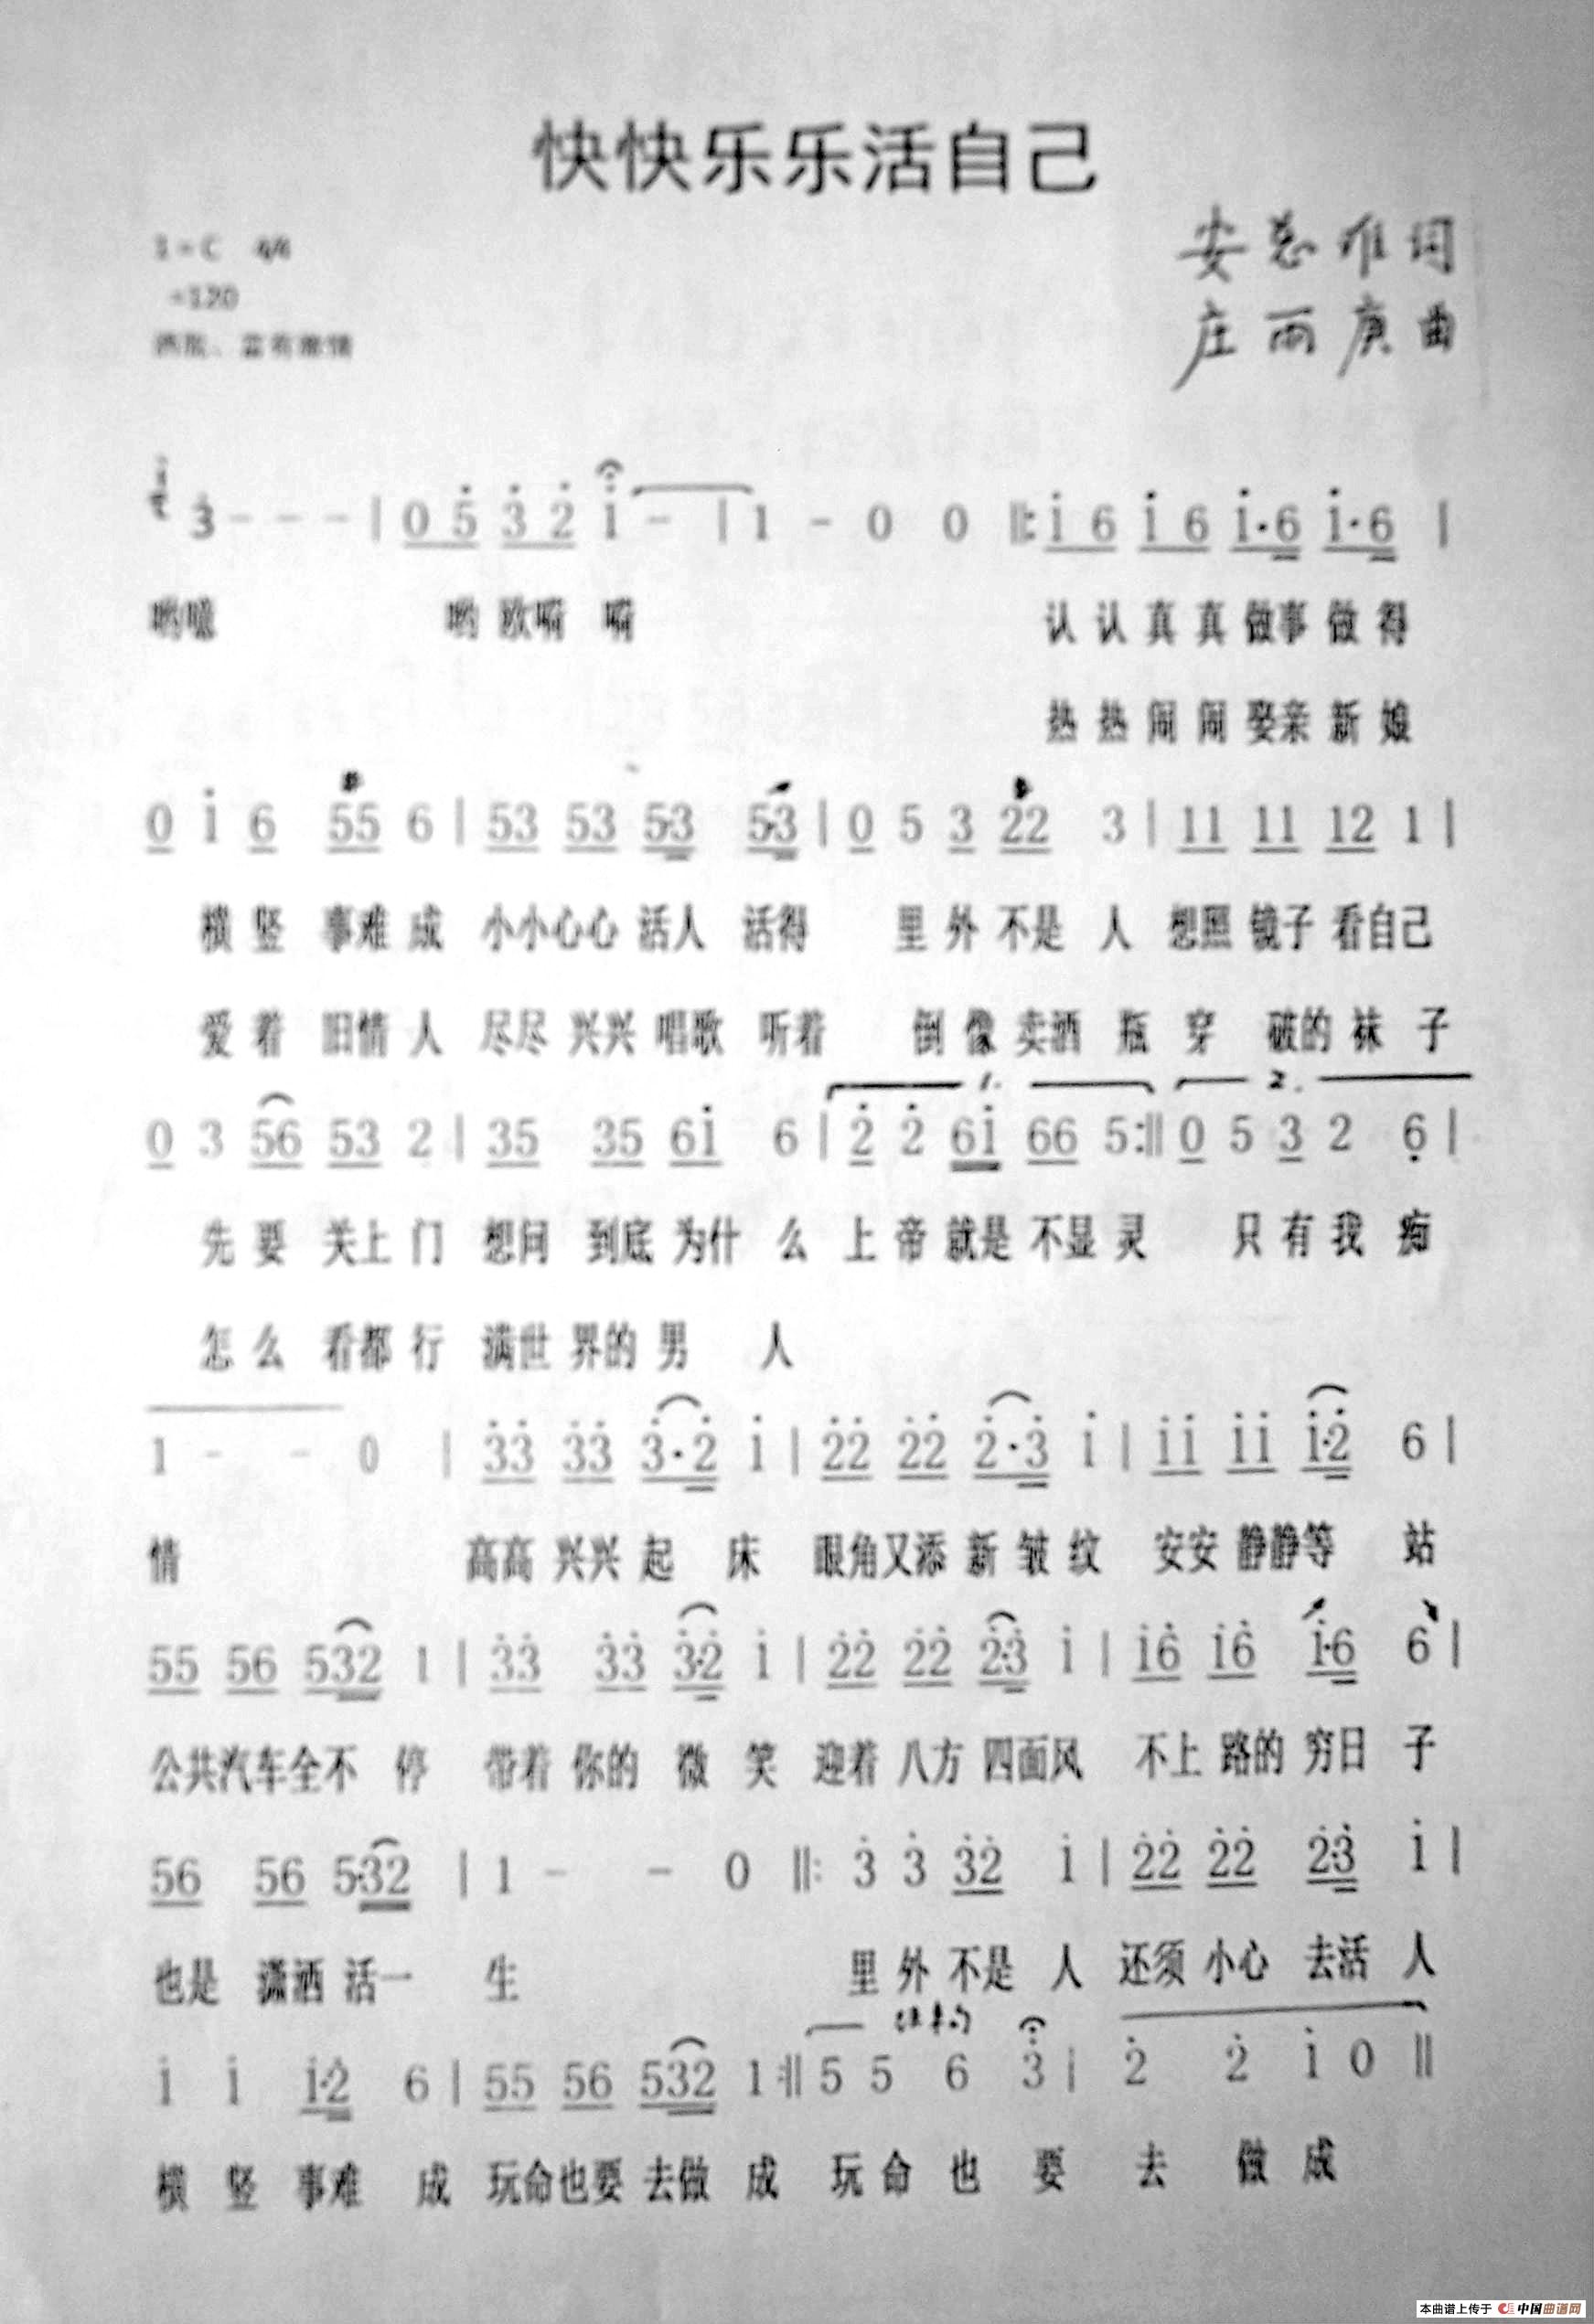 快快乐乐活自己
1=C 4/4
=120
安 志 词
庄 雨 庚 曲
3 - - - | 0 5 3 2 1 - | 1 - 0 0 ‖: 1 6 1 6 1·6 1·6 |
哟 哟 欧 认 认 真 真 做事 做 得
热 热 闹 闹 娶亲 新 娘
0 1 6 55 6 | 53 53 5·3 5·3 | 0 5 3 22 3 | 11 11 12 1 |
横 竖 事难 成 小小心心 活人 活得 里 外 不是 人 想照 镜子 看自己
爱 着 旧情 人 尽尽 兴兴 唱歌 听着 倒 像 卖酒 瓶 穿 破的 袜 子
1. 2.
0 3 56 53 2 | 35 35 61 6 | 2 2 61 66 5 :‖ 0 5 3 2 6 |
先 要 关上 门 想问 到底 为什 么 上 帝 就是 不显 灵 只 有 我 痴
怎 么 看都 行 满世 界的 男 人
1 - - 0 | 33 33 3·2 1 | 22 22 2·3 1 | 11 11 1·2 6 |
情 高高 兴兴 起 床 眼角又添 新 皱 纹 安安 静静等 站
55 56 532 1 | 33 33 3·2 1 | 22 22 2·3 1 | 16 16 1·6 6 |
公共汽车全不 停 带着 你的 微 笑 迎着 八方 四面风 不上 路的 穷日 子
56 56 5·32 | 1 - - 0 ‖: 3 3 32 1 | 22 22 2·3 1 |
也是 潇洒 活一 生 里 外 不是 人 还须 小心 去活 人
结束句
1 1 1·2 6 | 55 56 532 1 :‖ 5 5 6 3 | 2 2 1 0 ‖
横 竖 事难 成 玩命也要 去做 成 玩 命 也 要 去 做 成
本曲谱上传于 中国曲谱网